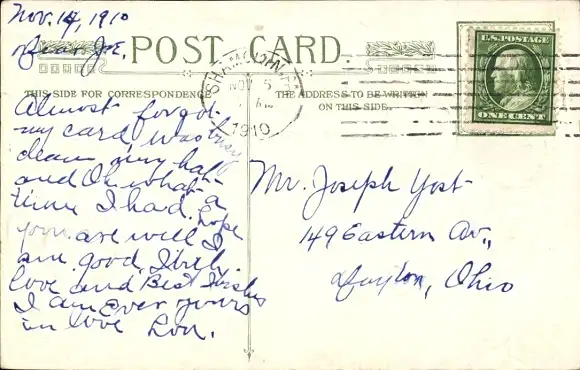 Nov. 14, 1910
Dear J.E.
POST CARD.
THIS SIDE FOR CORRESPONDENCE
THE ADDRESS TO BE WRITTEN
ON THIS SIDE.
NOV 5
1910
U.S. POSTAGE
ONE CENT
Almost forgot
my card was busy
clean my hat
and Oh what a
time I had. hope
you are well I
am good. With
love and Best Wishes
I am Ever yours
in love Lon.
Mr. Joseph Yost
149 Eastern Av.,
Dayton, Ohio